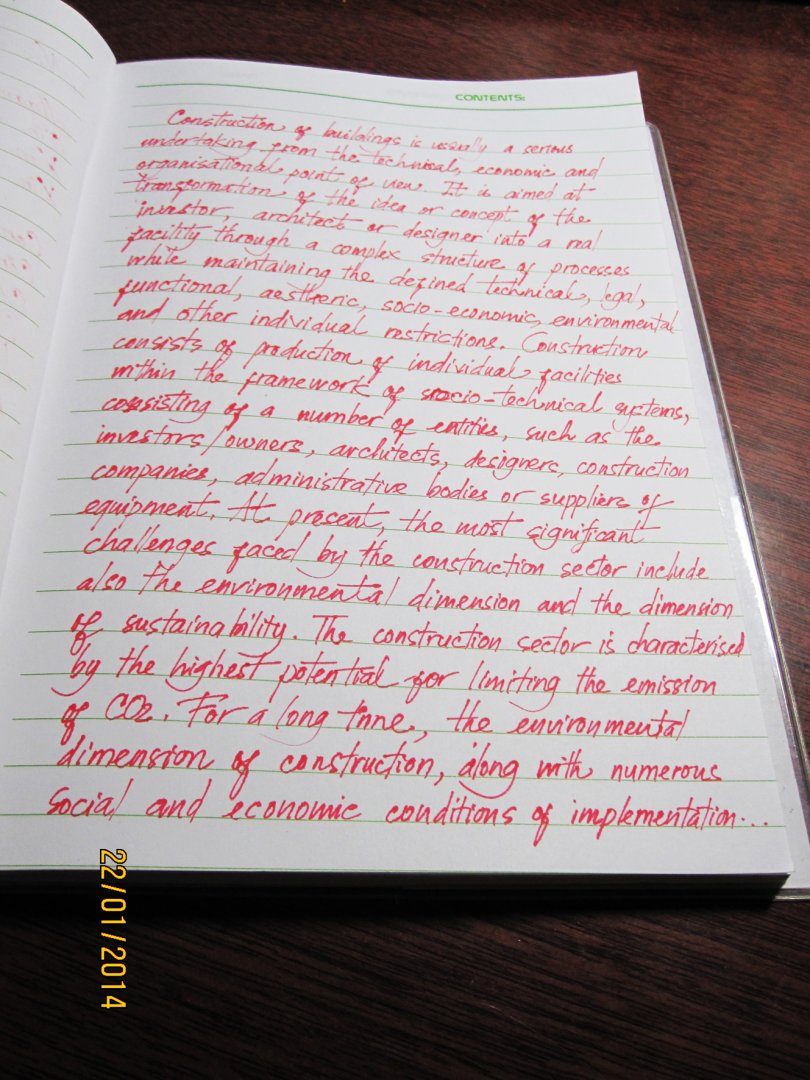 CONTENTS:
Construction of buildings is usually a serious
undertaking from the technical, economic and
organisational point of view. It is aimed at
transformation of the idea or concept of the
investor, architect or designer into a real
facility through a complex structure of processes
while maintaining the defined technical, legal,
functional, aesthetic, socio-economic, environmental
and other individual restrictions. Construction
consists of production of individual facilities
within the framework of socio-technical systems,
consisting of a number of entities, such as the
investors/owners, architects, designers, construction
companies, administrative bodies or suppliers of
equipment. At present, the most significant
challenges faced by the construction sector include
also the environmental dimension and the dimension
of sustainability. The construction sector is characterised
by the highest potential for limiting the emission
of CO2. For a long time, the environmental
dimension of construction, along with numerous
social and economic conditions of implementation...
22/01/2014